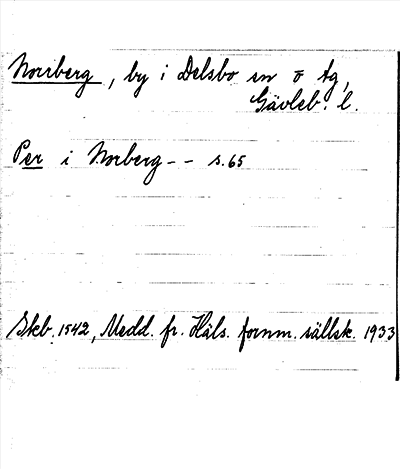 Norrberg, by i Delsbo sn o tg,
Gävleb. l.
Per i Norberg - - s. 65
Skb. 1542, Medd. fr. Häls. fornm. sällsk. 1933